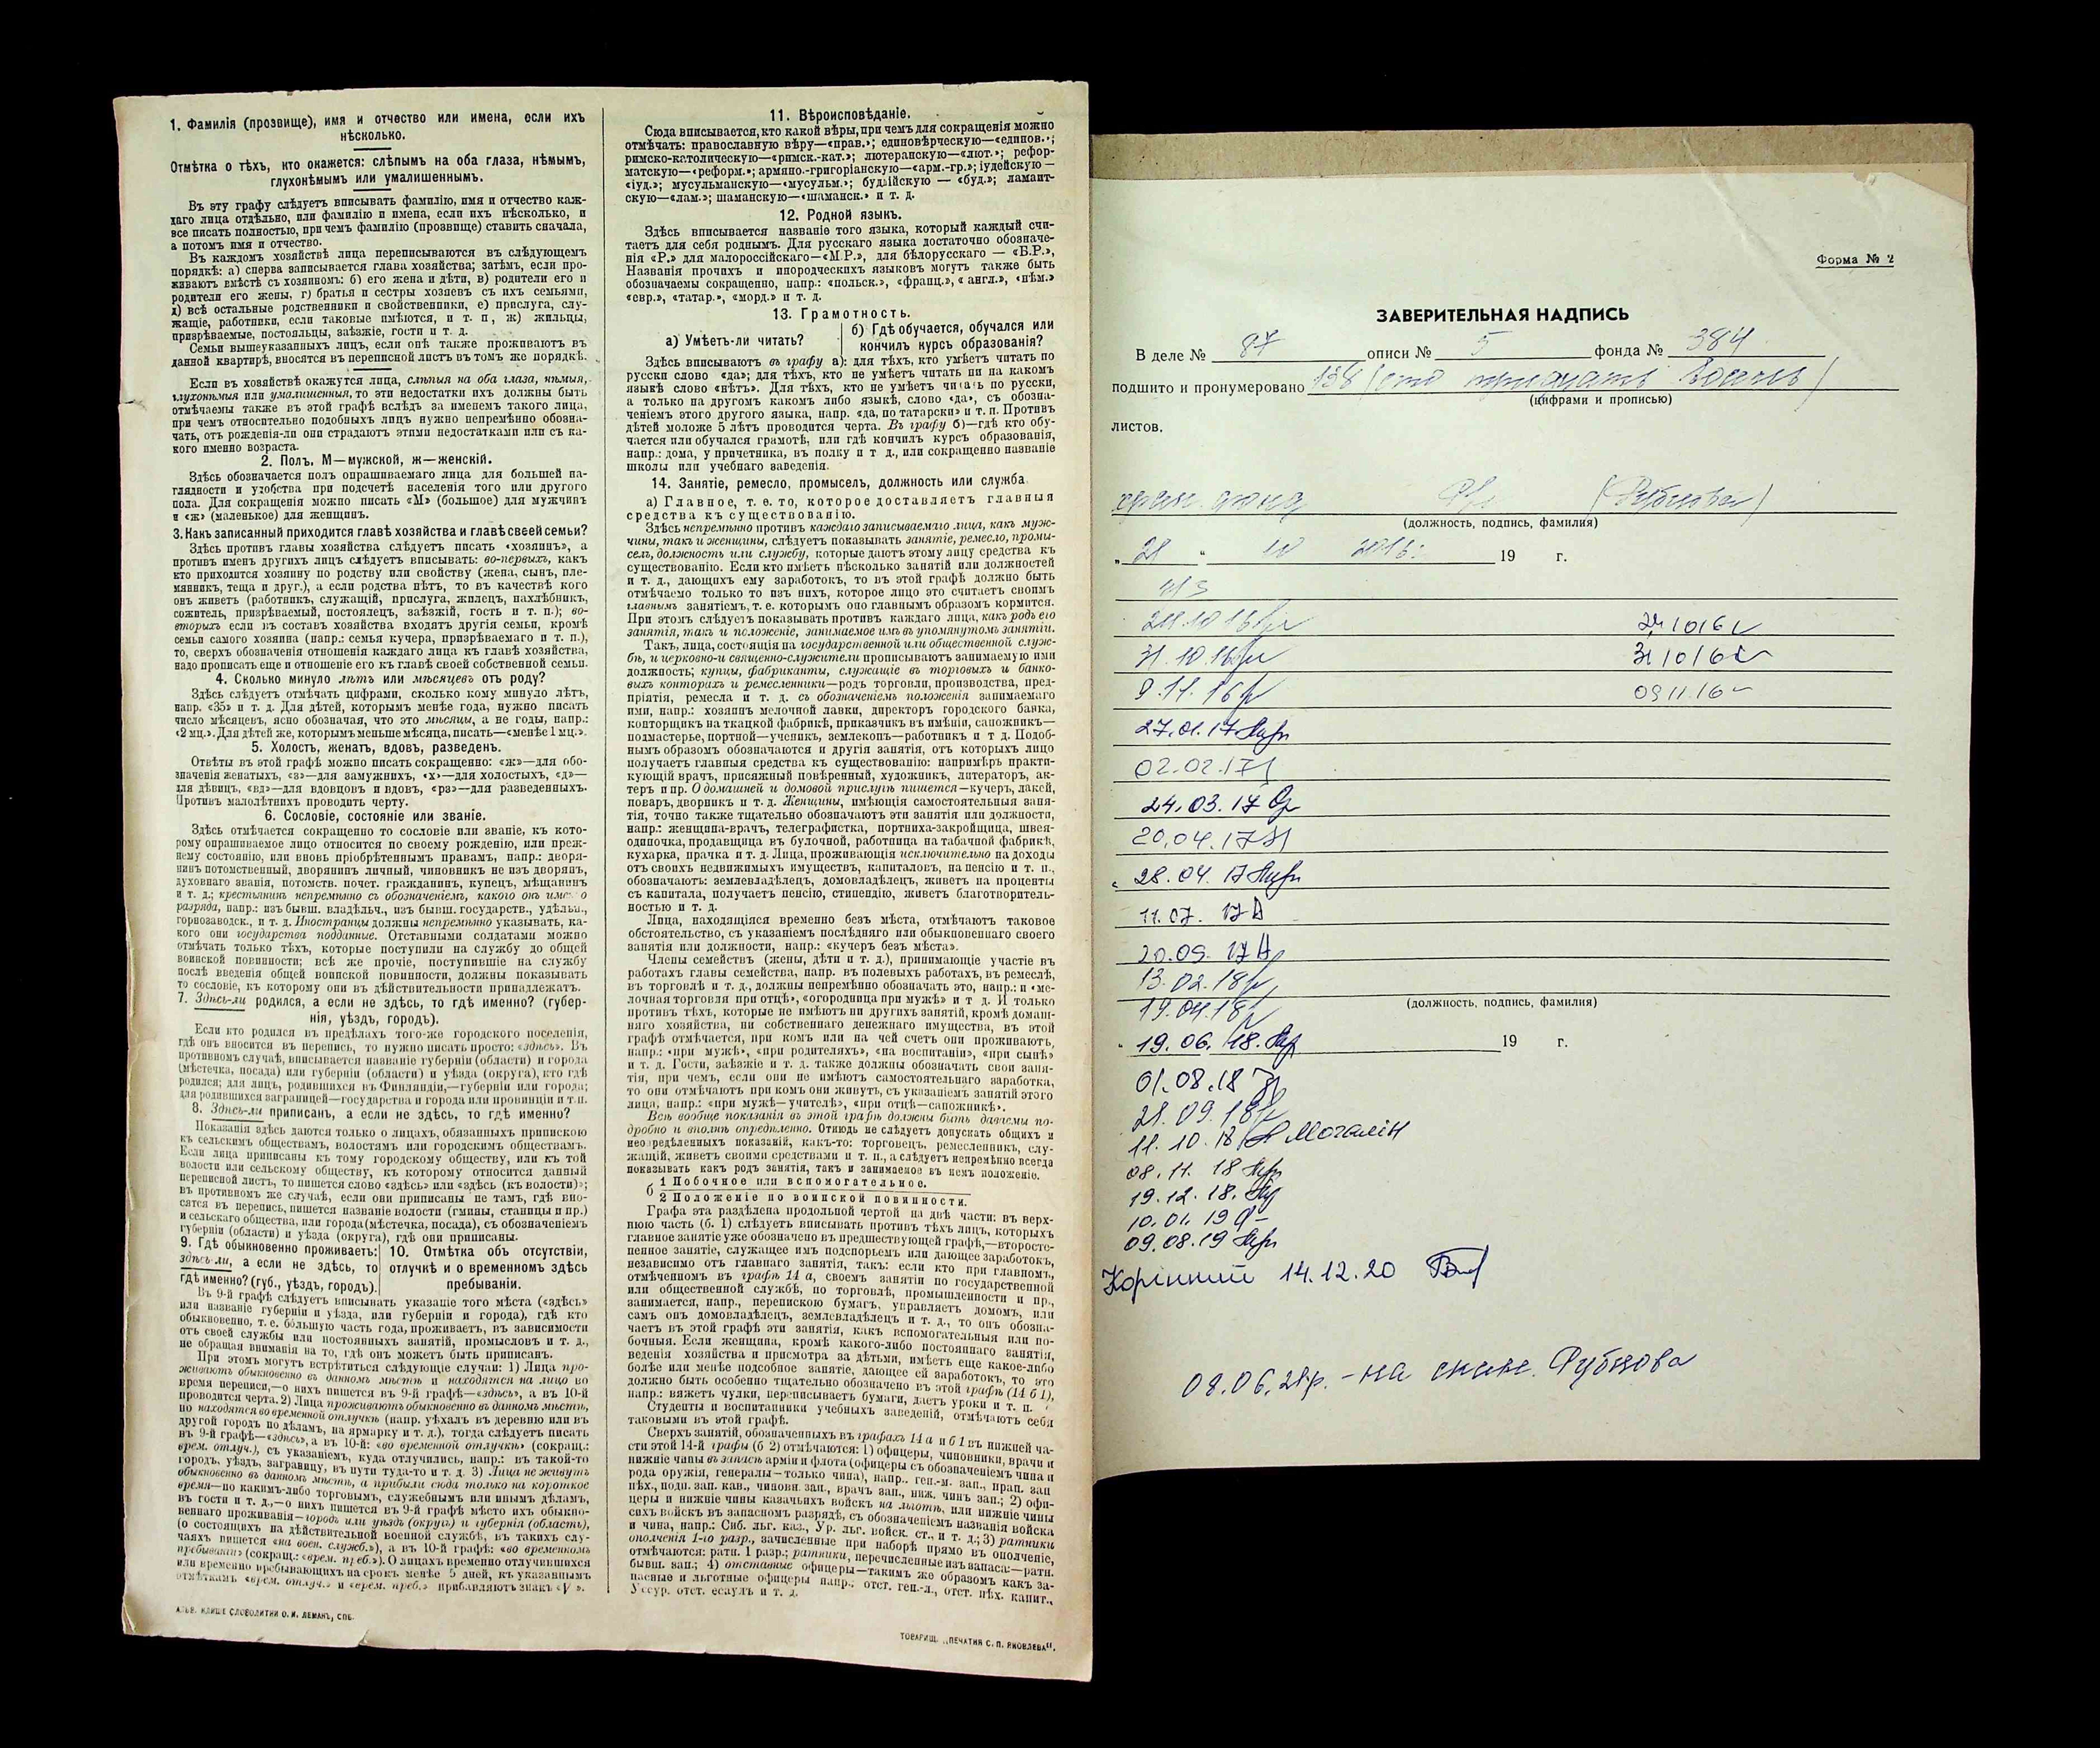 1. Фамилія (прозвище), имя и отчество или имена, если ихъ
нѣсколько.
Отмѣтка о тѣхъ, кто окажется: слѣпымъ на оба глаза, нѣмымъ,
глухонѣмымъ или умалишеннымъ.
Въ эту графу слѣдуетъ вписывать фамилію, имя и отчество каж-
даго лица отдѣльно, или фамилію и имена, если ихъ нѣсколько, и
все писать полностью, при чемъ фамилію (прозвище) ставить сначала,
а потомъ имя и отчество.
Въ каждомъ хозяйствѣ лица переписываются въ слѣдующемъ
порядкѣ: а) сперва записывается глава хозяйства; затѣмъ, если про-
живаютъ вмѣстѣ съ хозяиномъ: б) его жена и дѣти, в) родители его и
родители его жены, г) братья и сестры хозяевъ съ ихъ семьями,
д) всѣ остальные родственники и свойственники, е) прислуга, слу-
жащіе, работники, если таковые имѣются, и т. п, ж) жильцы,
призрѣваемые, постояльцы, заѣзжіе, гости и т. д.
Семьи вышеуказанныхъ лицъ, если онѣ также проживаютъ въ
данной квартирѣ, вносятся въ переписной листъ въ томъ же порядкѣ.
Если въ хозяйствѣ окажутся лица, слѣпыя на оба глаза, нѣмыя,
глухонѣмыя или умалишенныя, то эти недостатки ихъ должны быть
отмѣчаемы также въ этой графѣ вслѣдъ за именемъ такого лица,
при чемъ относительно подобныхъ лицъ нужно непремѣнно обозна-
чать, отъ рожденія-ли они страдаютъ этими недостатками или съ ка-
кого именно возраста.
2. Полъ. М—мужской, ж—женскій.
Здѣсь обозначается полъ опрашиваемаго лица для большей на-
глядности и удобства при подсчетѣ населенія того или другого
пола. Для сокращенія можно писать «М» (большое) для мужчинъ
и «ж» (маленькое) для женщинъ.
3. Какъ записанный приходится главѣ хозяйства и главѣ своей семьи?
Здѣсь противъ главы хозяйства слѣдуетъ писать «хозяинъ», а
противъ именъ другихъ лицъ слѣдуетъ вписывать: во-первыхъ, какъ
кто приходится хозяину по родству или свойству (жена, сынъ, пле-
мянникъ, теща и друг.), а если родства нѣтъ, то въ качествѣ кого
онъ живетъ (работникъ, служащій, прислуга, жилецъ, нахлѣбникъ,
сожитель, призрѣваемый, постоялецъ, заѣзжій, гость и т. п.); во-
вторыхъ если въ составъ хозяйства входятъ другія семьи, кромѣ
семьи самого хозяина (напр.: семья кучера, призрѣваемаго и т. п.),
то, сверхъ обозначенія отношенія каждаго лица къ главѣ хозяйства,
надо прописать еще и отношеніе его къ главѣ своей собственной семьи.
4. Сколько минуло лѣтъ или мѣсяцевъ отъ роду?
Здѣсь слѣдуетъ отмѣчать цифрами, сколько кому минуло лѣтъ,
напр. «35» и т. д. Для дѣтей, которымъ менѣе года, нужно писать
число мѣсяцевъ, ясно обозначая, что это мѣсяцы, а не годы, напр.:
«2 мц.». Для дѣтей же, которымъ меньше мѣсяца, писать—«менѣе 1 мц.».
5. Холостъ, женатъ, вдовъ, разведенъ.
Отвѣты въ этой графѣ можно писать сокращенно: «ж»—для обо-
значенія женатыхъ, «з»—для замужнихъ, «х»—для холостыхъ, «д»—
для дѣвицъ, «вд»—для вдовцовъ и вдовъ, «рз»—для разведенныхъ.
Противъ малолѣтнихъ проводить черту.
6. Сословіе, состояніе или званіе.
Здѣсь отмѣчается сокращенно то сословіе или званіе, къ кото-
рому опрашиваемое лицо относится по своему рожденію, или преж-
нему состоянію, или вновь пріобрѣтеннымъ правамъ, напр.: дворя-
нинъ потомственный, дворянинъ личный, чиновникъ не изъ дворянъ,
духовнаго званія, потомств. почет. гражданинъ, купецъ, мѣщанинъ
и т. д.; крестьянинъ непремѣнно съ обозначеніемъ, какого онъ именно
разряда, напр.: изъ бывш. владѣльч., изъ бывш. государств., удѣльн.,
горнозаводск. и т. д. Иностранцы должны непремѣнно указывать, ка-
кого они государства подданные. Отставными солдатами можно
отмѣчать только тѣхъ, которые поступили на службу до общей
воинской повинности; всѣ же прочіе, поступившіе на службу
послѣ введенія общей воинской повинности, должны показывать
то сословіе, къ которому они въ дѣйствительности принадлежатъ.
7. Здѣсь-ли родился, а если не здѣсь, то гдѣ именно? (губер-
нія, уѣздъ, городъ).
Если кто родился въ предѣлахъ того-же городского поселенія,
гдѣ онъ вносится въ перепись, то нужно писать просто: «здѣсь». Въ
противномъ случаѣ, вписывается названіе губерніи (области) и города
(мѣстечка, посада) или губерніи (области) и уѣзда (округа), кто гдѣ
родился; для лицъ, родившихся въ Финляндіи,—губерніи или города;
для родившихся заграницей—государства и города или провинціи и т. п.
8. Здѣсь-ли приписанъ, а если не здѣсь, то гдѣ именно?
Показанія здѣсь даются только о лицахъ, обязанныхъ припискою
къ сельскимъ обществамъ, волостямъ или городскимъ обществамъ.
Если лица приписаны къ тому городскому обществу, или къ той
волости или сельскому обществу, къ которому относится данный
переписной листъ, то пишется слово «здѣсь» или «здѣсь (къ волости)»;
въ противномъ же случаѣ, если они приписаны не тамъ, гдѣ вно-
сятся въ перепись, пишется названіе волости (гмины, станицы и пр.)
и сельскаго общества, или города (мѣстечка, посада), съ обозначеніемъ
губерніи (области) и уѣзда (округа), гдѣ они приписаны.
9. Гдѣ обыкновенно проживаетъ:
здѣсь-ли, а если не здѣсь, то
гдѣ именно? (губ., уѣздъ, городъ).
10. Отмѣтка объ отсутствіи,
отлучкѣ и о временномъ здѣсь
пребываніи.
Въ 9-й графѣ слѣдуетъ вписывать указаніе того мѣста («здѣсь»
или названіе губерніи и уѣзда, или губерніи и города), гдѣ кто
обыкновенно, т. е. бо́льшую часть года, проживаетъ, въ зависимости
отъ своей службы или постоянныхъ занятій, промысловъ и т. д.,
не обращая вниманія на то, гдѣ онъ можетъ быть приписанъ.
При этомъ могутъ встрѣтиться слѣдующіе случаи: 1) Лица про-
живаютъ обыкновенно въ данномъ мѣстѣ и находятся на лицо во
время переписи,—о нихъ пишется въ 9-й графѣ—«здѣсь», а въ 10-й
проводится черта. 2) Лица проживаютъ обыкновенно въ данномъ мѣстѣ,
но находятся во временной отлучкѣ (напр. уѣхалъ въ деревню или въ
другой городъ по дѣламъ, на ярмарку и т. д.), тогда слѣдуетъ писать
въ 9-й графѣ—«здѣсь», а въ 10-й: «во временной отлучкѣ» (сокращ.:
врем. отлуч.), съ указаніемъ, куда отлучились, напр.: въ такой-то
городъ, уѣздъ, заграницу, въ пути туда-то и т. д. 3) Лица не живутъ
обыкновенно въ данномъ мѣстѣ, а прибыли сюда только на короткое
время—по какимъ-либо торговымъ, служебнымъ или инымъ дѣламъ,
въ гости и т. д.,—о нихъ пишется въ 9-й графѣ мѣсто ихъ обыкно-
веннаго проживанія—городъ или уѣздъ (округъ) и губернія (область),
(о состоящихъ на дѣйствительной военной службѣ, въ такихъ слу-
чаяхъ пишется «на воен. служб.»), а въ 10-й графѣ: «во временномъ
пребываніи» (сокращ.: «врем. преб.»). О лицахъ временно отлучившихся
или временно пребывающихъ на срокъ менѣе 5 дней, къ указаннымъ
отмѣткамъ «врем. отлуч.» и «врем. преб.» прибавляютъ знакъ «V».
АЛЬБ. КЛИШЕ СЛОВОЛИТНИ О. И. ЛЕМАНЪ, СПБ.
11. Вѣроисповѣданіе.
Сюда вписывается, кто какой вѣры, при чемъ для сокращенія можно
отмѣчать: православную вѣру—«прав.»; единовѣрческую—«единов.»;
римско-католическую—«римск.-кат.»; лютеранскую—«лют.»; рефор-
матскую—«реформ.»; армяно.-григоріанскую—«арм.-гр.»; іудейскую—
«іуд.»; мусульманскую—«мусульм.»; буддійскую — «буд.»; ламаит-
скую—«лам.»; шаманскую—«шаманск.» и т. д.
12. Родной языкъ.
Здѣсь вписывается названіе того языка, который каждый счи-
таетъ для себя роднымъ. Для русскаго языка достаточно обозначе-
нія «Р.» для малороссійскаго—«М.Р.», для бѣлорусскаго — «Б.Р.»,
Названія прочихъ и инородческихъ языковъ могутъ также быть
обозначаемы сокращенно, напр.: «польск.», «франц.», « англ.», «нѣм.»
«евр.», «татар.», «морд.» и т. д.
13. Грамотность.
а) Умѣетъ-ли читать?
б) Гдѣ обучается, обучался или
кончилъ курсъ образованія?
Здѣсь вписываютъ въ графу а): для тѣхъ, кто умѣетъ читать по
русски слово «да»; для тѣхъ, кто не умѣетъ читать ни на какомъ
языкѣ слово «нѣтъ». Для тѣхъ, кто не умѣетъ читать по русски,
а только на другомъ какомъ либо языкѣ, слово «да», съ обозна-
ченіемъ этого другого языка, напр. «да, по татарски» и т. п. Противъ
дѣтей моложе 5 лѣтъ проводится черта. Въ графу б)—гдѣ кто обу-
чается или обучался грамотѣ, или гдѣ кончилъ курсъ образованія,
напр.: дома, у причетника, въ полку и т д., или сокращенно названіе
школы или учебнаго заведенія.
14. Занятіе, ремесло, промыселъ, должность или служба
а) Главное, т. е. то, которое доставляетъ главныя
средства къ существованію.
Здѣсь непремѣнно противъ каждаго записываемаго лица, какъ муж-
чины, такъ и женщины, слѣдуетъ показывать занятіе, ремесло, промы-
селъ, должность или службу, которые даютъ этому лицу средства къ
существованію. Если кто имѣетъ нѣсколько занятій или должностей
и т. д., дающихъ ему заработокъ, то въ этой графѣ должно быть
отмѣчаемо только то изъ нихъ, которое лицо это считаетъ своимъ
главнымъ занятіемъ, т. е. которымъ оно главнымъ образомъ кормится.
При этомъ слѣдуетъ показывать противъ каждаго лица, какъ родъ его
занятія, такъ и положеніе, занимаемое имъ въ упомянутомъ занятіи.
Такъ, лица, состоящія на государственной или общественной служ-
бѣ, и церковно-и священно-служители прописываютъ занимаемую ими
должность; купцы, фабриканты, служащіе въ торговыхъ и банко-
выхъ конторахъ и ремесленники—родъ торговли, производства, пред-
пріятія, ремесла и т. д. съ обозначеніемъ положенія занимаемаго
ими, напр.: хозяинъ мелочной лавки, директоръ городского банка,
конторщикъ на ткацкой фабрикѣ, приказчикъ въ имѣніи, сапожникъ—
подмастерье, портной—ученикъ, землекопъ—работникъ и т д. Подоб-
нымъ образомъ обозначаются и другія занятія, отъ которыхъ лицо
получаетъ главныя средства къ существованію: напримѣръ практи-
кующій врачъ, присяжный повѣренный, художникъ, литераторъ, ак-
теръ и пр. О домашней и домовой прислугѣ пишется—кучеръ, лакей,
поваръ, дворникъ и т. д. Женщины, имѣющія самостоятельныя заня-
тія, точно также тщательно обозначаютъ эти занятія или должности,
напр.: женщина-врачъ, телеграфистка, портниха-закройщица, швея-
одиночка, продавщица въ булочной, работница на табачной фабрикѣ,
кухарка, прачка и т. д. Лица, проживающія исключительно на доходы
отъ своихъ недвижимыхъ имуществъ, капиталовъ, на пенсію и т. п.,
обозначаютъ: землевладѣлецъ, домовладѣлецъ, живетъ на проценты
съ капитала, получаетъ пенсію, стипендію, живетъ благотворитель-
ностью и т. д.
Лица, находящіяся временно безъ мѣста, отмѣчаютъ таковое
обстоятельство, съ указаніемъ послѣдняго или обыкновеннаго своего
занятія или должности, напр.: «кучеръ безъ мѣста».
Члены семействъ (жены, дѣти и т. д.), принимающіе участіе въ
работахъ главы семейства, напр. въ полевыхъ работахъ, въ ремеслѣ,
въ торговлѣ и т. д., должны непремѣнно обозначать это, напр.: п «ме-
лочная торговля при отцѣ», «огородница при мужѣ» и т д. И только
противъ тѣхъ, которые не имѣютъ ни другихъ занятій, кромѣ домаш-
няго хозяйства, ни собственнаго денежнаго имущества, въ этой
графѣ отмѣчается, при комъ или на чей счетъ они проживаютъ,
напр.: «при мужѣ», «при родителяхъ», «на воспитаніи», «при сынѣ»
и т. д. Гости, заѣзжіе и т. д. также должны обозначать свои заня-
тія, при чемъ, если они не имѣютъ самостоятельнаго заработка,
то они отмѣчаютъ при комъ они живутъ, съ указаніемъ занятій этого
лица, напр.: «при мужѣ—учителѣ», «при отцѣ—сапожникѣ».
Всѣ вообще показанія въ этой графѣ должны быть даваемы по-
дробно и вполнѣ опредѣленно. Отнюдь не слѣдуетъ допускать общихъ и
неопредѣленныхъ показаній, какъ-то: торговецъ, ремесленникъ, слу-
жащій, живетъ своими средствами и т. п., а слѣдуетъ непремѣнно всегда
показывать какъ родъ занятія, такъ и занимаемое въ немъ положеніе.
б 1 Побочное или вспомогательное.
2 Положеніе по воинской повинности.
Графа эта раздѣлена продольной чертой на двѣ части: въ верх-
нюю часть (б. 1) слѣдуетъ вписывать противъ тѣхъ лицъ, которыхъ
главное занятіе уже обозначено въ предшествующей графѣ,—второсте-
пенное занятіе, служащее имъ подспорьемъ или дающее заработокъ,
независимо отъ главнаго занятія, такъ: если кто при главномъ,
отмѣченномъ въ графѣ 14 а, своемъ занятіи по государственной
или общественной службѣ, по торговлѣ, промышленности и пр.,
занимается, напр., перепискою бумагъ, управляетъ домомъ, или
самъ онъ домовладѣлецъ, землевладѣлецъ и т. д., то онъ обозна-
чаетъ въ этой графѣ эти занятія, какъ вспомогательныя или по-
бочныя. Если женщина, кромѣ какого-либо постояннаго занятія,
веденія хозяйства и присмотра за дѣтьми, имѣетъ еще какое-либо
болѣе или менѣе подсобное занятіе, дающее ей заработокъ, то это
должно быть особенно тщательно обозначено въ этой графѣ (14 б 1),
напр.: вяжетъ чулки, переписываетъ бумаги, даетъ уроки и т. п.
Студенты и воспитанники учебныхъ заведеній, отмѣчаютъ себя
таковыми въ этой графѣ.
Сверхъ занятій, обозначенныхъ въ графахъ 14 а и б 1 въ нижней ча-
сти этой 14-й графы (б 2) отмѣчаются: 1) офицеры, чиновники, врачи и
нижніе чины въ запасѣ арміи и флота (офицеры съ обозначеніемъ чина и
рода оружія, генералы—только чина), напр.. ген.-м. зап., прап. зап
пѣх., подп. зап. кав., чиновн. зап., врачъ зап., ниж. чинъ зап.; 2) офи-
церы и нижніе чины казачьихъ войскъ на льготѣ, или нижніе чины
сихъ войскъ въ запасномъ разрядѣ, съ обозначеніемъ названія войска
и чина, напр.: Сиб. льг. каз., Ур. льг. войск. ст., и т. д.; 3) ратники
ополченія 1-го разр., зачисленные при наборѣ прямо въ ополченіе,
отмѣчаются: ратн. 1 разр.; ратники, перечисленные изъ запаса:—ратн.
бывш. зап.; 4) отставные офицеры—такимъ же образомъ какъ за-
пасные и льготные офицеры напр.: отст. ген.-л., отст. пѣх. капит.,
Уссур. отст. есаулъ и т. д.
ТОВАРИЩ. „ПЕЧАТНЯ С. П. ЯКОВЛЕВА“.
Форма № 2
ЗАВЕРИТЕЛЬНАЯ НАДПИСЬ
В деле № 87 описи № 5 фонда № 384
подшито и пронумеровано 138 (сто тридцать восемь)
(цифрами и прописью)
листов.
хран. фонд (Рубцова)
(должность, подпись, фамилия)
„ 21 “ 10 2016г. 19 г.
31.10.16
9.11.16 09.11.16
27.01.17
02.02.17
24.03.17
20.04.17
28.04.17
11.07.17
20.09.17
13.02.18
(должность, подпись, фамилия)
19.04.18
19.06.18. 19 г.
01.08.18
21.09.18
11.10.18 Мочалін
08.11.18
19.12.18.
10.01.19
09.08.19
Корінний 14.12.20
08.06.21р. – на скан. Рубцова